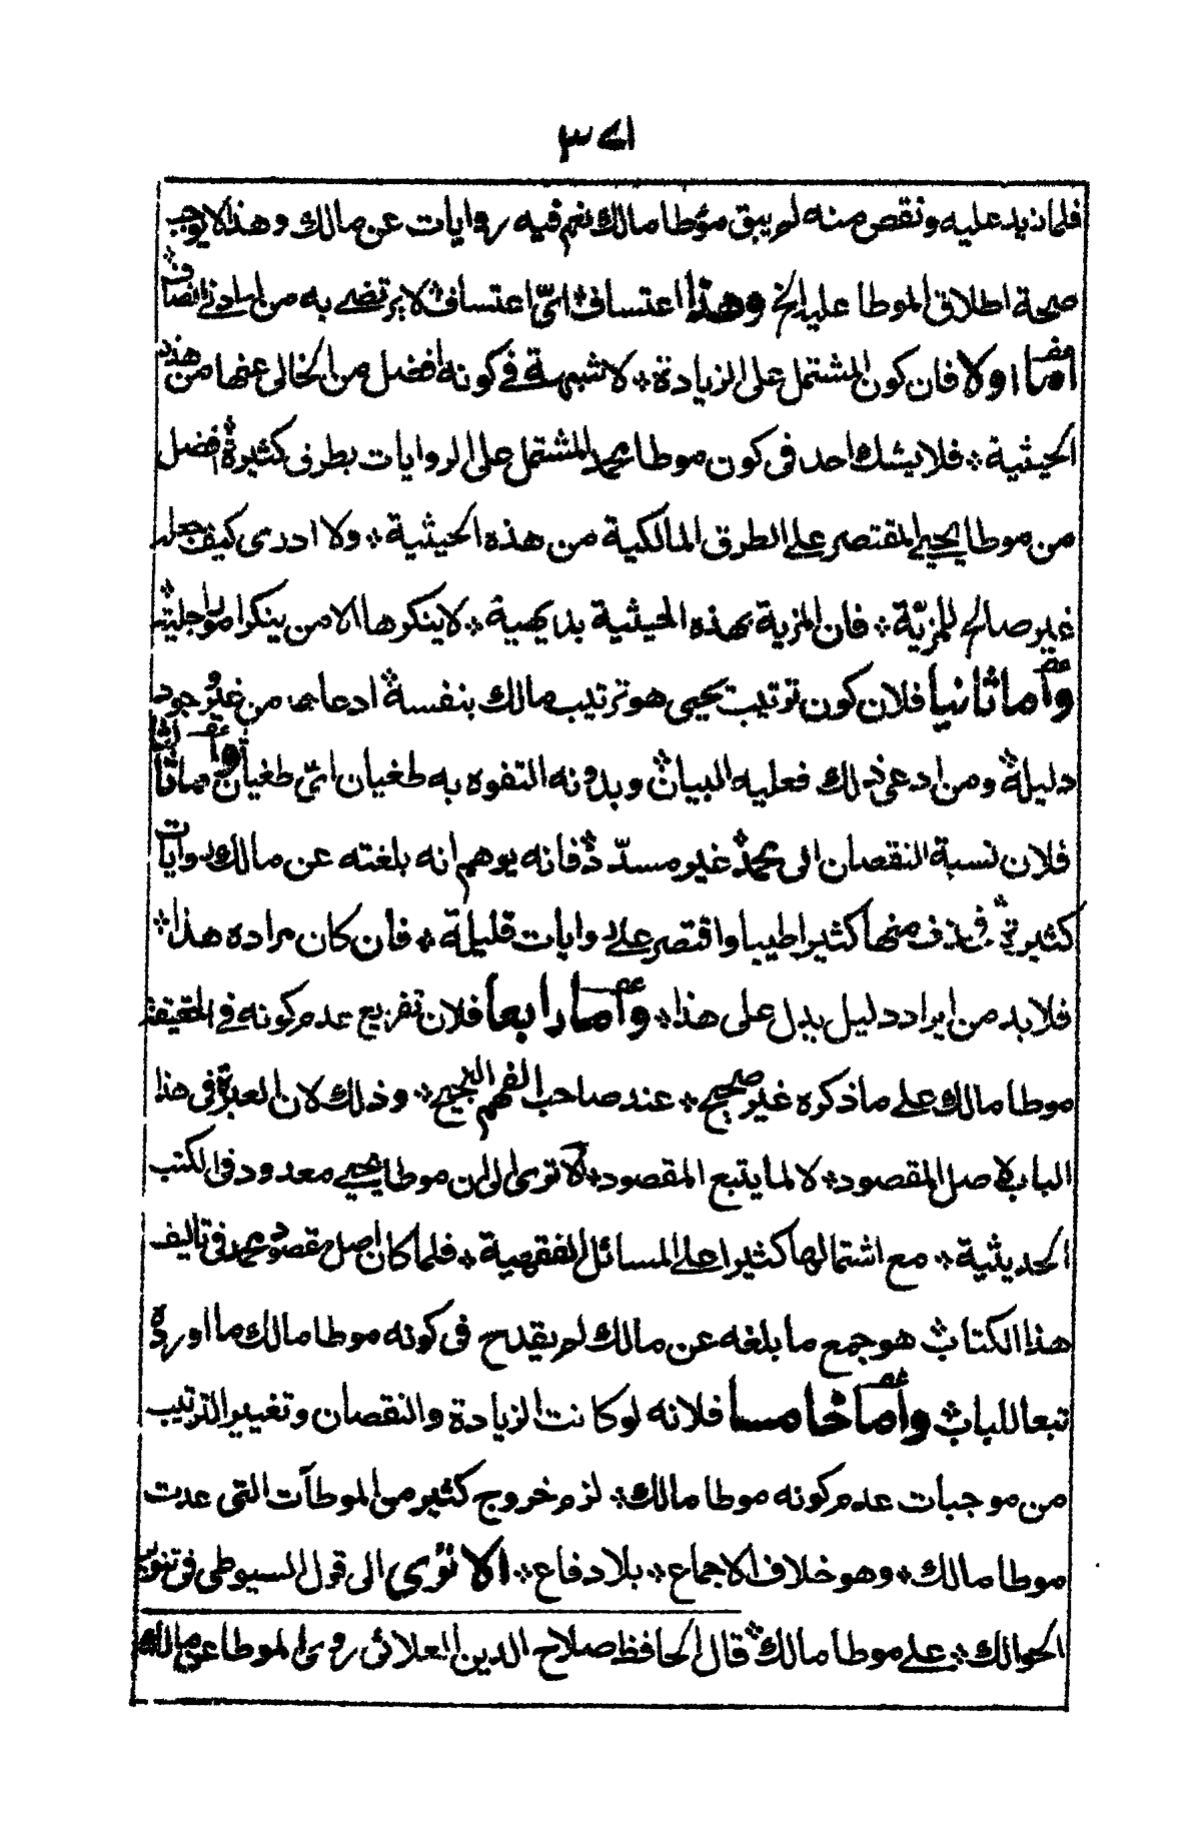 ٣٧١
فلما زيد عليه ونقص منه لم يبق مؤطا مالك نعم فيه روايات عن مالك وهذا لا يوجب
صحة اطلاق الموطا عليه الخ وهذا اعتساف اىّ اعتساف لا يرتضى به من له ادنى انصاف
اما اولا فان كون المشتمل على الزيادة لا شبهة فى كونه افضل من الخالى عنها من هذه
الحيثية فلا يشك احد فى كون موطا محمد المشتمل على الروايات بطرق كثيرة افضل
من موطا يحيى المقتصر على الطرق المالكية من هذه الحيثية ولا ادرى كيف جعله
غير صالح للمزيّة فان المزية بهذه الحيثية بديهية لا ينكرها الا من ينكر امورا جلية
وأما ثانيا فلان كون ترتيب يحيى هو ترتيب مالك بنفسه ادعاء من غير وجود
دليله ومن ادعى ذلك فعليه البيان وبدونه التفوه به طغيان اىّ طغيان وأما ثالثا
فلان نسبة النقصان الى محمد غير مسدّد فانه يوهم انه بلغته عن مالك روايات
كثيرة فحذف منها كثيرا طيبا واقتصر على روايات قليلة فان كان مراده هذا
فلا بد من ايراد دليل يدل على هذا وأما رابعا فلان تفريع عدم كونه فى الحقيقة
موطا مالك على ما ذكره غير صحيح عند صاحب الفهم النجيح وذلك لان العبرة فى هذا
الباب لاصل المقصود لا لما يتبع المقصود الا ترى الى ان موطا يحيى معدود فى الكتب
الحديثية مع اشتمالها كثيرا على المسائل الفقهية فلما كان اصل مقصود محمد فى تاليف
هذا الكتاب هو جمع ما بلغه عن مالك لم يقدح فى كونه موطا مالك ما اورده
تبعا للباب وأما خامسا فلانه لو كانت الزيادة والنقصان وتغيير الترتيب
من موجبات عدم كونه موطا مالك لزم خروج كثير من الموطآت التى عدت
موطا مالك وهو خلاف الاجماع بلا دفاع الا ترى الى قول السيوطى فى تنوير
الحوالك على موطا مالك قال الحافظ صلاح الدين العلائى روى الموطا عن مالك